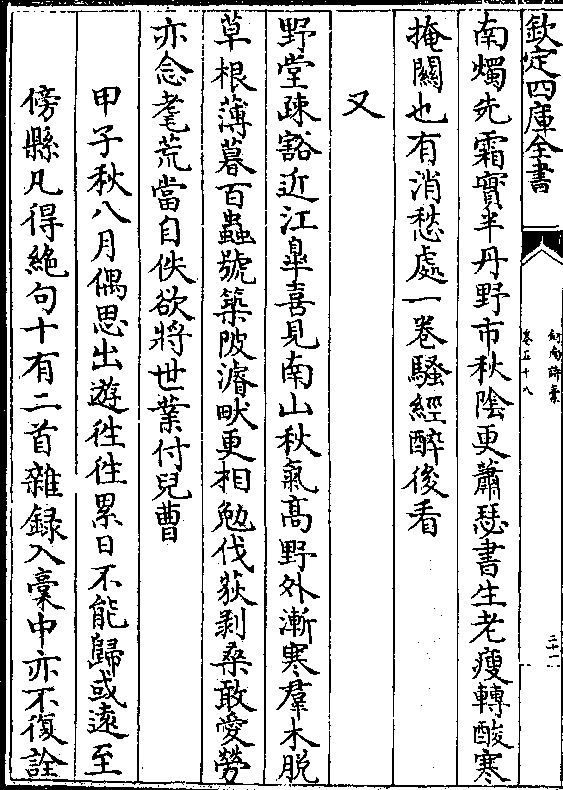 欽定四庫全書
劍南詩稾
卷五十八
三十一
南燭先霜實半丹野市秋隂更蕭瑟書生老瘦轉酸寒
掩關也有消愁處一卷騷經醉後看
又
野堂疎豁近江臯喜見南山秋氣髙野外漸寒羣木脱
草根薄暮百蟲號築陂濬畎更相勉伐荻剥桑敢愛勞
亦念耄荒當自佚欲將世業付兒曹
甲子秋八月偶思出遊徃徃累日不能歸或逺至
傍縣凡得絶句十有二首雜録入稾中亦不復詮